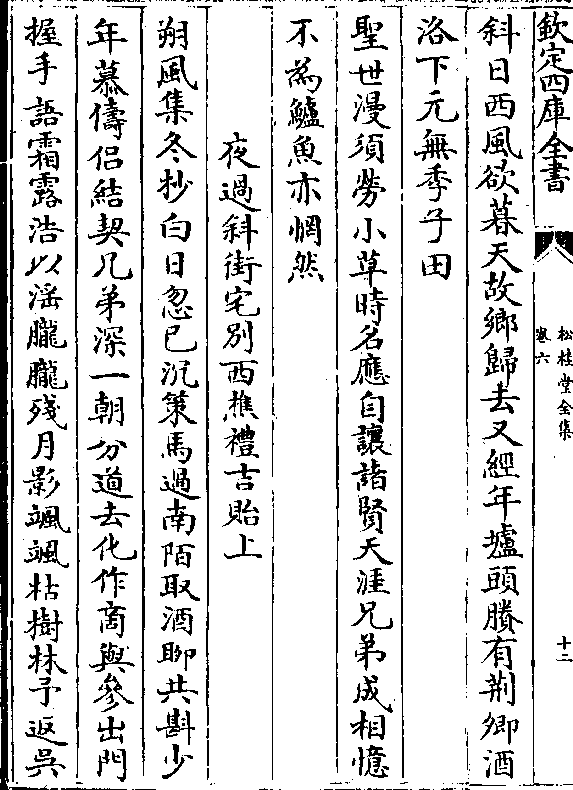 欽定四庫全書
松桂堂全集
卷六
十二
斜日西風欲暮天故鄉歸去又經年壚頭賸有荆卿酒
洛下元無季子田
聖世漫須勞小草時名應自讓諸賢天涯兄弟成相憶
不為鱸魚亦惘然
夜過斜街宅别西樵禮吉貽上
朔風集冬杪白日忽已沉策馬過南陌取酒聊共斟少
年慕儔侣結契兄弟深一朝分道去化作商與參出門
握手語霜露浩以滛朧朧殘月影颯颯枯樹林予返吳